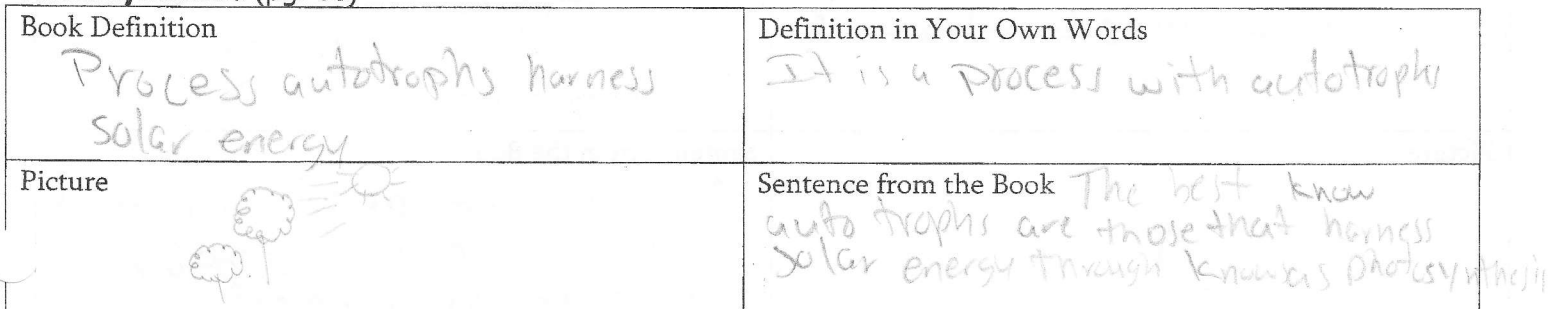 Book Definition
Process autotrophs harness
solar energy
Definition in Your Own Words
It is a process with autotrophs
Picture
Sentence from the Book The best know
auto trophs are those that harness
solar energy through known as photosynthesis